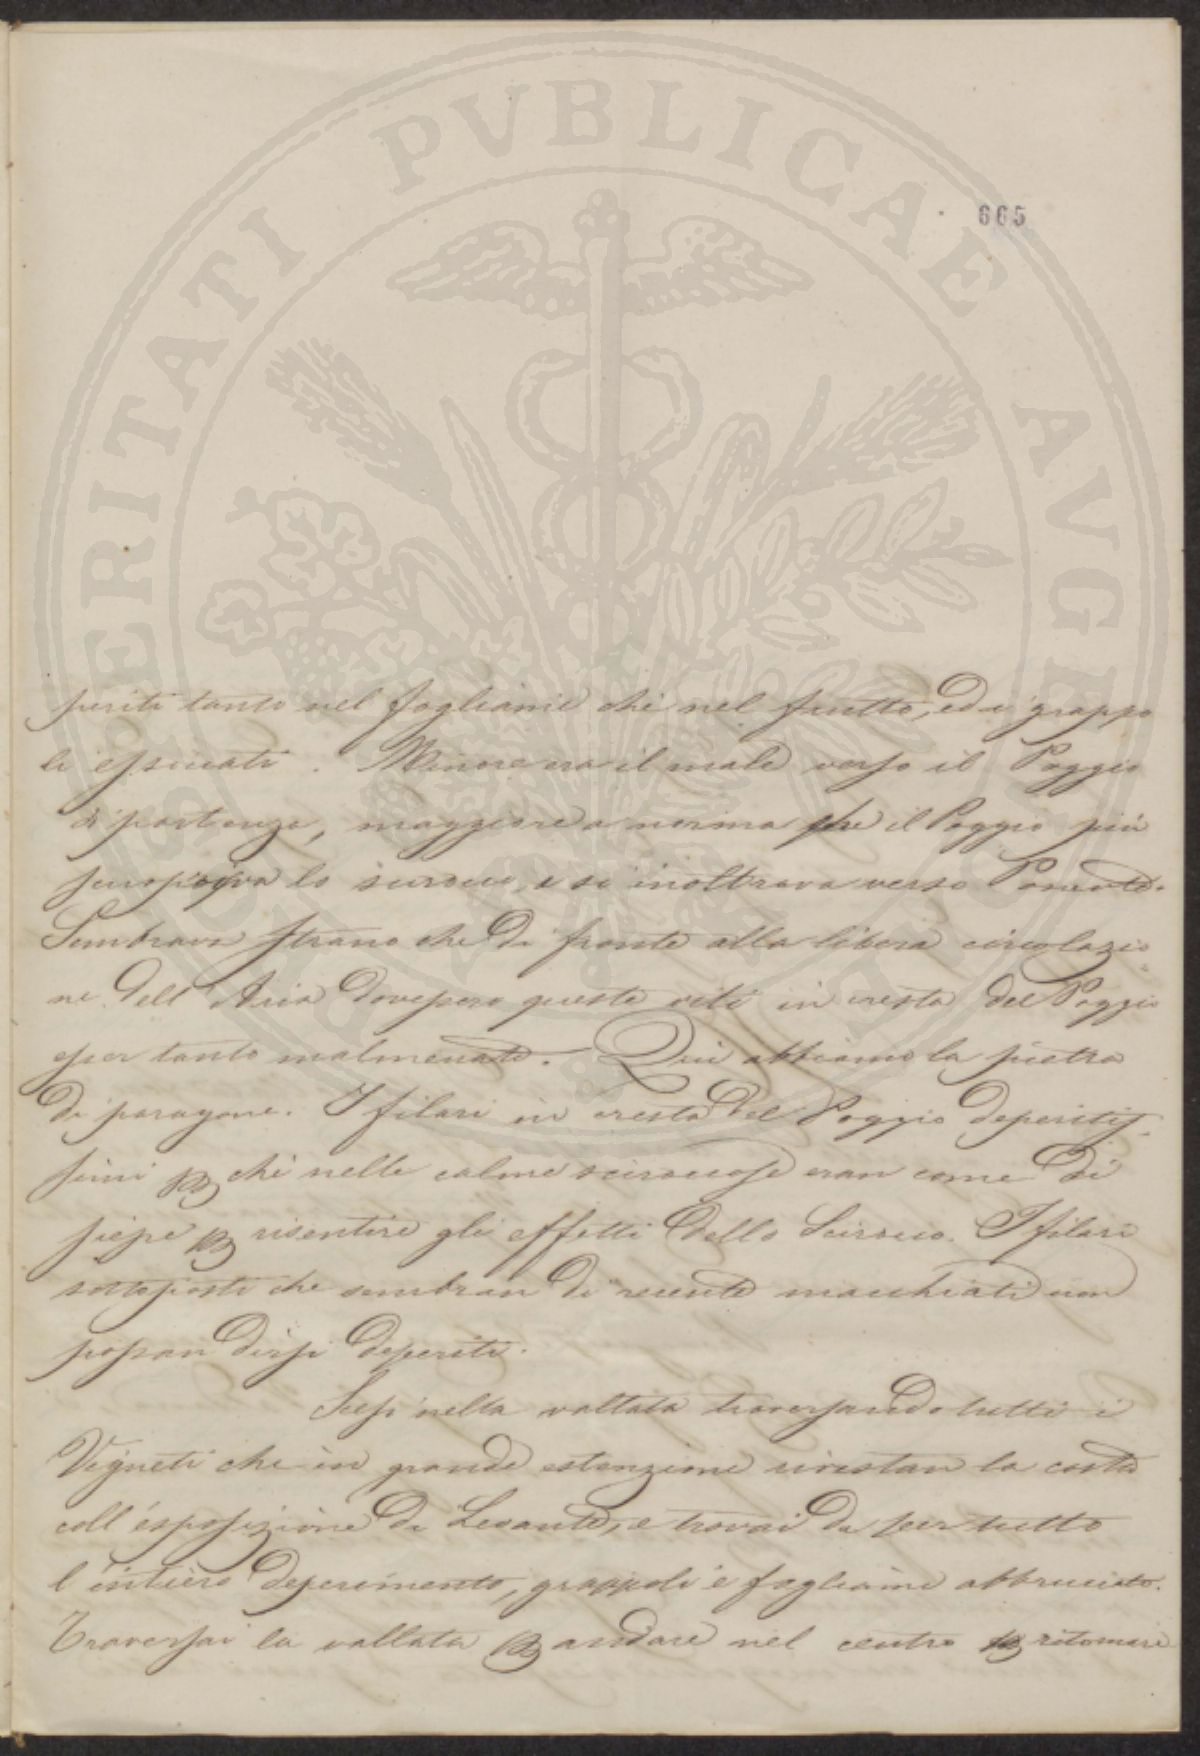 PROSPERITATI PVBLICAE AVGENDAE
665
periti tanto nel fogliame che nel frutto, ed i grappo
li essiccati. Minore era il male verso il Poggio
di partenza, maggiore a norma che il Poggio più
lo scirocco, e si inoltrava verso Ponente.
Sembrava strano che di fronte alla libera circolazio
ne dell'Aria dovessero queste viti in cresta del Poggio
esser tanto malmenate. Qui abbiamo la pietra
di paragone. I filari in cresta del Poggio deperitis-
simi perchè nelle calme sciroccose eran come di
siepe per risentire gli effetti dello Scirocco. I filari
sottoposti che sembran di recente macchiati non
possan dirsi deperiti.
Scesi nella vallata traversando tutti i
Vigneti che in grande estenzione rivestan la costa
coll'esposizione di Levante, e trovai da per tutto
l'intiero deperimento, grappoli e fogliame abbruciato.
Traversai la vallata per andare nel centro per ritornare